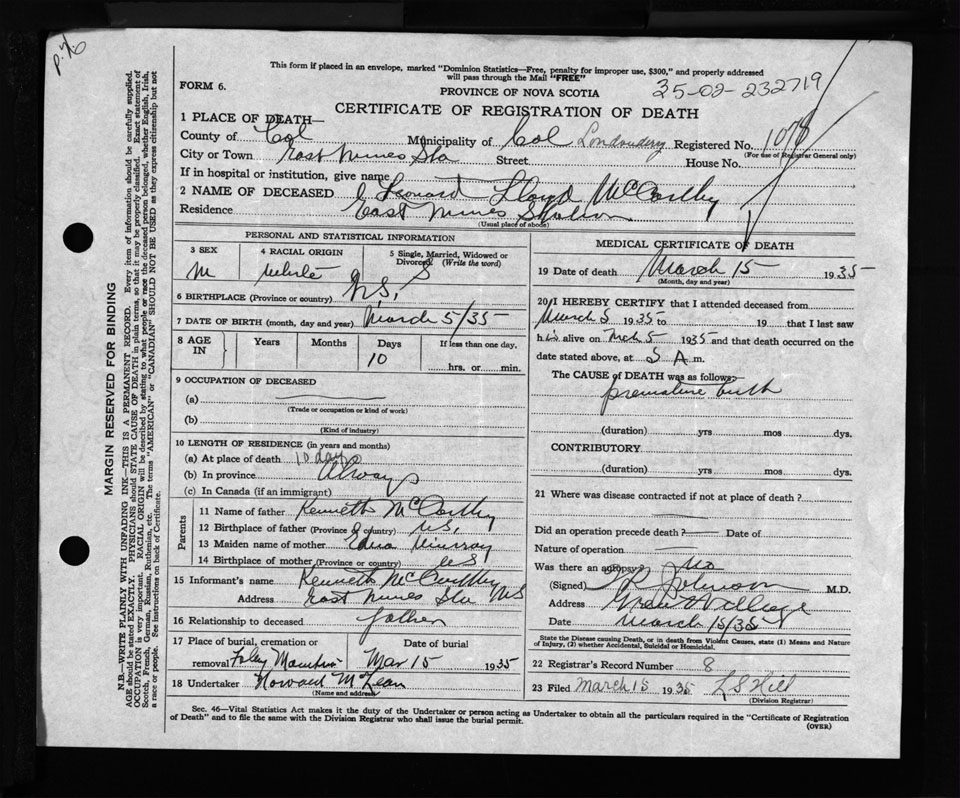 P.76
This form if placed in an envelope, marked "Dominion Statistics—Free, penalty for improper use, $300," and properly addressed
will pass through the Mail "FREE"
FORM 6.
PROVINCE OF NOVA SCOTIA
35-02-232719
CERTIFICATE OF REGISTRATION OF DEATH
1 PLACE OF DEATH—
County of Col Municipality of Col Londonderry Registered No. 1078
(For use of Registrar General only)
City or Town East Mines Sta Street House No.
If in hospital or institution, give name
2 NAME OF DECEASED Leonard Lloyd McCarthy
Residence East Mines Station
(Usual place of abode)
PERSONAL AND STATISTICAL INFORMATION
3 SEX M
4 RACIAL ORIGIN White
5 Single, Married, Widowed or Divorced (Write the word) S
6 BIRTHPLACE (Province or country) N.S.
7 DATE OF BIRTH (month, day and year) March 5/35
8 AGE IN Years Months Days If less than one day.
10 hrs. or min.
9 OCCUPATION OF DECEASED
(a)
(Trade or occupation or kind of work)
(b)
(Kind of industry)
10 LENGTH OF RESIDENCE (in years and months)
(a) At place of death 10 days
(b) In province Always
(c) In Canada (if an immigrant)
Parents
11 Name of father Kenneth McCarthy
12 Birthplace of father (Province or country) NS.
13 Maiden name of mother Edna Murray
14 Birthplace of mother (Province or country) NS
15 Informant's name Kenneth McCarthy
Address East Mines Sta NS
16 Relationship to deceased father
17 Place of burial, cremation or Date of burial
removal Foley Mountain Mar 15 1935
18 Undertaker Howard McLean
(Name and address)
MEDICAL CERTIFICATE OF DEATH
19 Date of death March 15 1935
(Month, day and year)
20 I HEREBY CERTIFY that I attended deceased from
March 5 1935 to 19 that I last saw
him alive on Mch 5 1935 and that death occurred on the
date stated above, at 5 A m.
The CAUSE of DEATH was as follows
premature birth
(duration) yrs mos dys.
CONTRIBUTORY
(duration) yrs mos dys.
21 Where was disease contracted if not at place of death?
Did an operation precede death? Date of
Nature of operation
Was there an autopsy? No
(Signed) Johnson M.D.
Address Great Village
Date March 15/35
State the Disease causing Death, or in death from Violent Causes, state (1) Means and Nature
of Injury, (2) whether Accidental, Suicidal or Homicidal.
22 Registrar's Record Number 8
23 Filed March 15 1935 L S Hill
(Division Registrar)
Sec. 46—Vital Statistics Act makes it the duty of the Undertaker or person acting as Undertaker to obtain all the particulars required in the "Certificate of Registration
of Death" and to file the same with the Division Registrar who shall issue the burial permit.
(OVER)
MARGIN RESERVED FOR BINDING
N.B.—WRITE PLAINLY WITH UNFADING INK—THIS IS A PERMANENT RECORD. Every item of information should be carefully supplied.
AGE should be stated EXACTLY. PHYSICIANS should STATE CAUSE OF DEATH in plain terms, so that it may be properly classified. Exact statement of
OCCUPATION is very important. RACIAL ORIGIN will be described by stating to what people or race the deceased person belonged, whether English, Irish,
Scotch, French, German, Russian, Ruthenian, etc. The terms "AMERICAN" or "CANADIAN" SHOULD NOT BE USED as they express citizenship but not
a race or people. See instructions on back of Certificate.